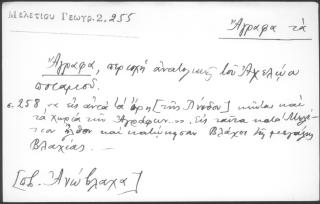 Μελετίου Γεωγρ. 2, 255
Ἄγραφα τὰ
Ἄγραφα, περιοχὴ ἀνατολικῶς τοῦ Ἀχελῴου
ποταμοῦ.
σ. 258 « εἰς αὐτὰ τὰ ὄρη [τῆς Πίνδου] κεῖνται καὶ
τὰ χωρία τῶν Ἀγράφων... Εἰς ταῦτα κατὰ
ἦλθον καὶ κατῴκησαν Βλάχοι τῆς μεγάλης
Βλαχίας. —
[πβ. Ἀνώβλαχα]